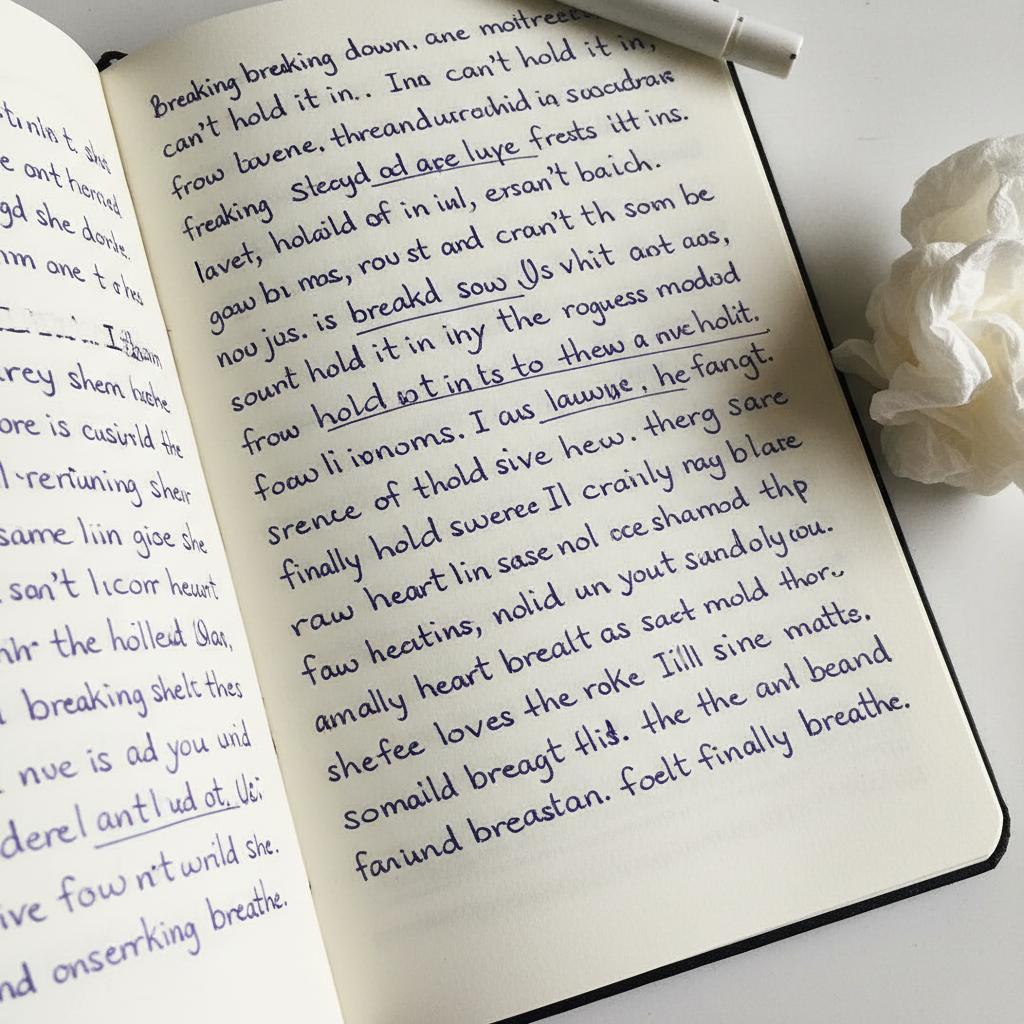 .tinin t. she
e ant horned
gd she dorle.
nm one t
I
rey shem
ore is cusivld the
l-reriuning shear
same liin gioe she
san't licorr heunt
the hölled
breaking shelt thes
nue is ad you und
derel antl ud ot.
ive fow n't wrild she.
nd onserrking breathe.
Breaking breaking down. ane
can't hold it in.. Inn can't hold it in,
frow bavene. threandurrochid in soocdraw
freaking Stecyd ad ace luye frests itt ins.
lavet, holaild of in iul, ersan't baich.
gow bi mas, rou st and cran't th som be
nou jus. is breakd sow Us vhit ant aos,
sount hold it in iny the roguess modod
frow hold ot in ts to thew a nve holit.
foaw li ionoms. I aus lauwye, he fangt.
srence of thold sive hew. therg sare
finally hold sweree Il crainly ray blare
raw heart lin sase nol oce shamod thp
faw heatins, nolid un yout sundoly cou.
amally heart brealt as saet mold thor.
shefee loves the roke Iilll sine matts.
somaild breagt flis. the the anl beand
fanund breastan. foelt finally breathe.